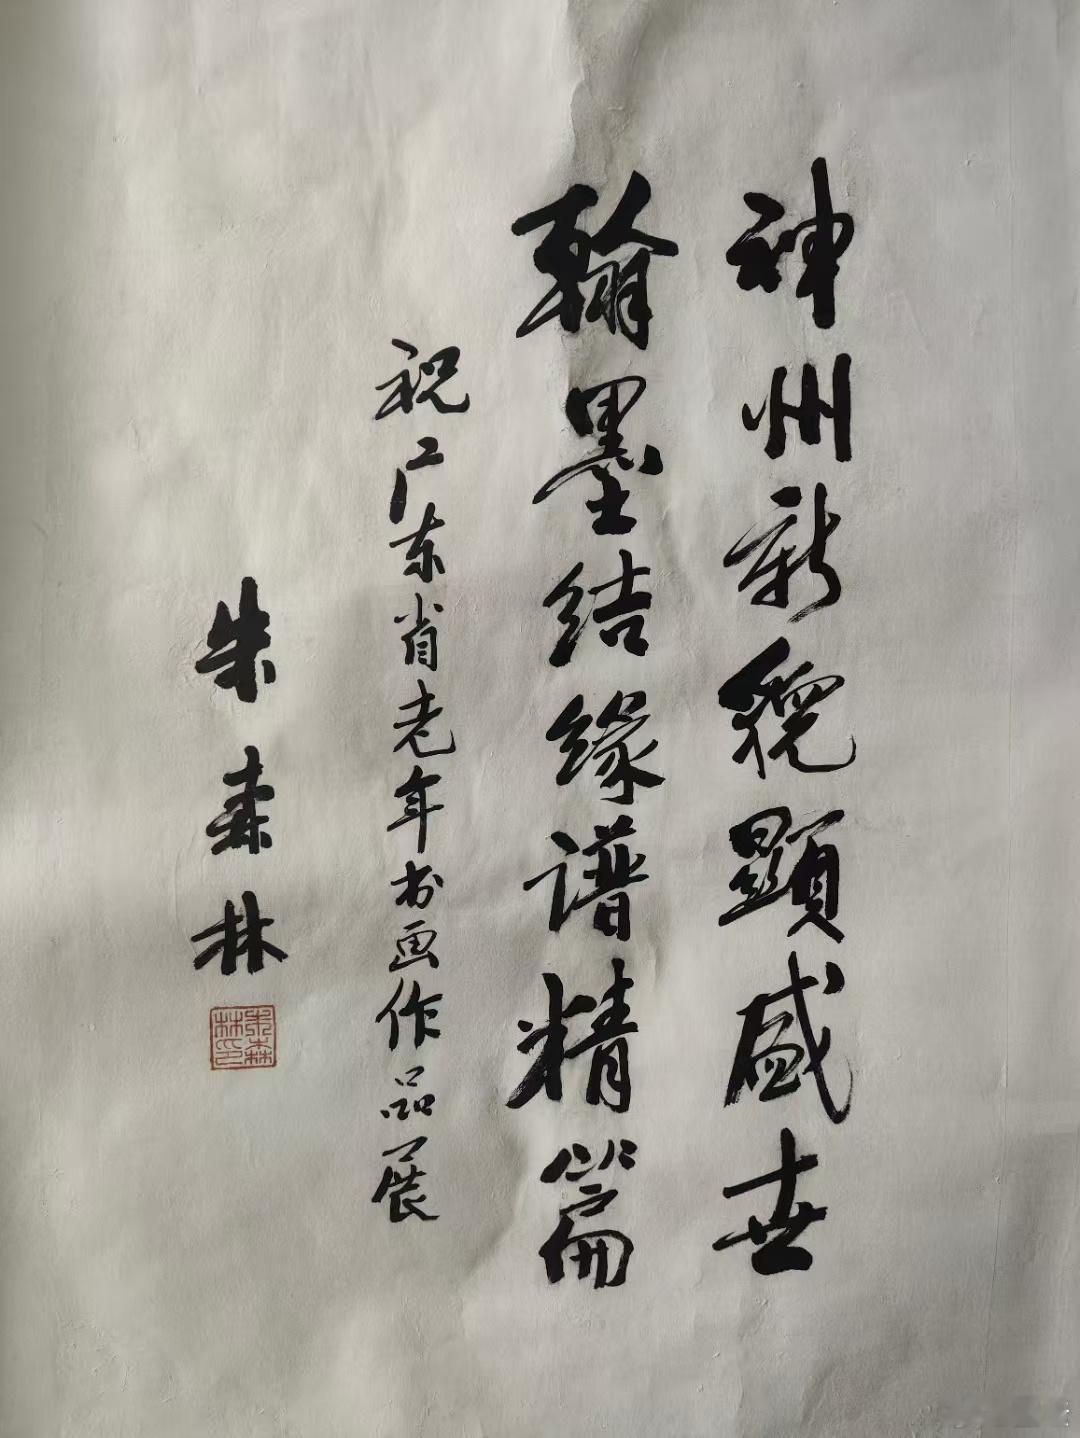 神州新貌顯盛世
翰墨结缘谱精篇
祝广东省老年书画作品展
朱森林
朱森林印